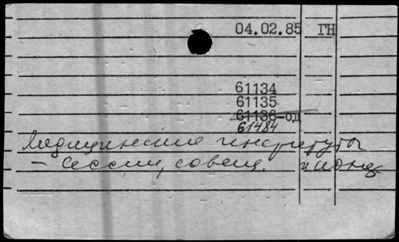 04.02.85 ГН
61134
61135
61136-од
61484
Медицинские институты
- Сессии, совещ.